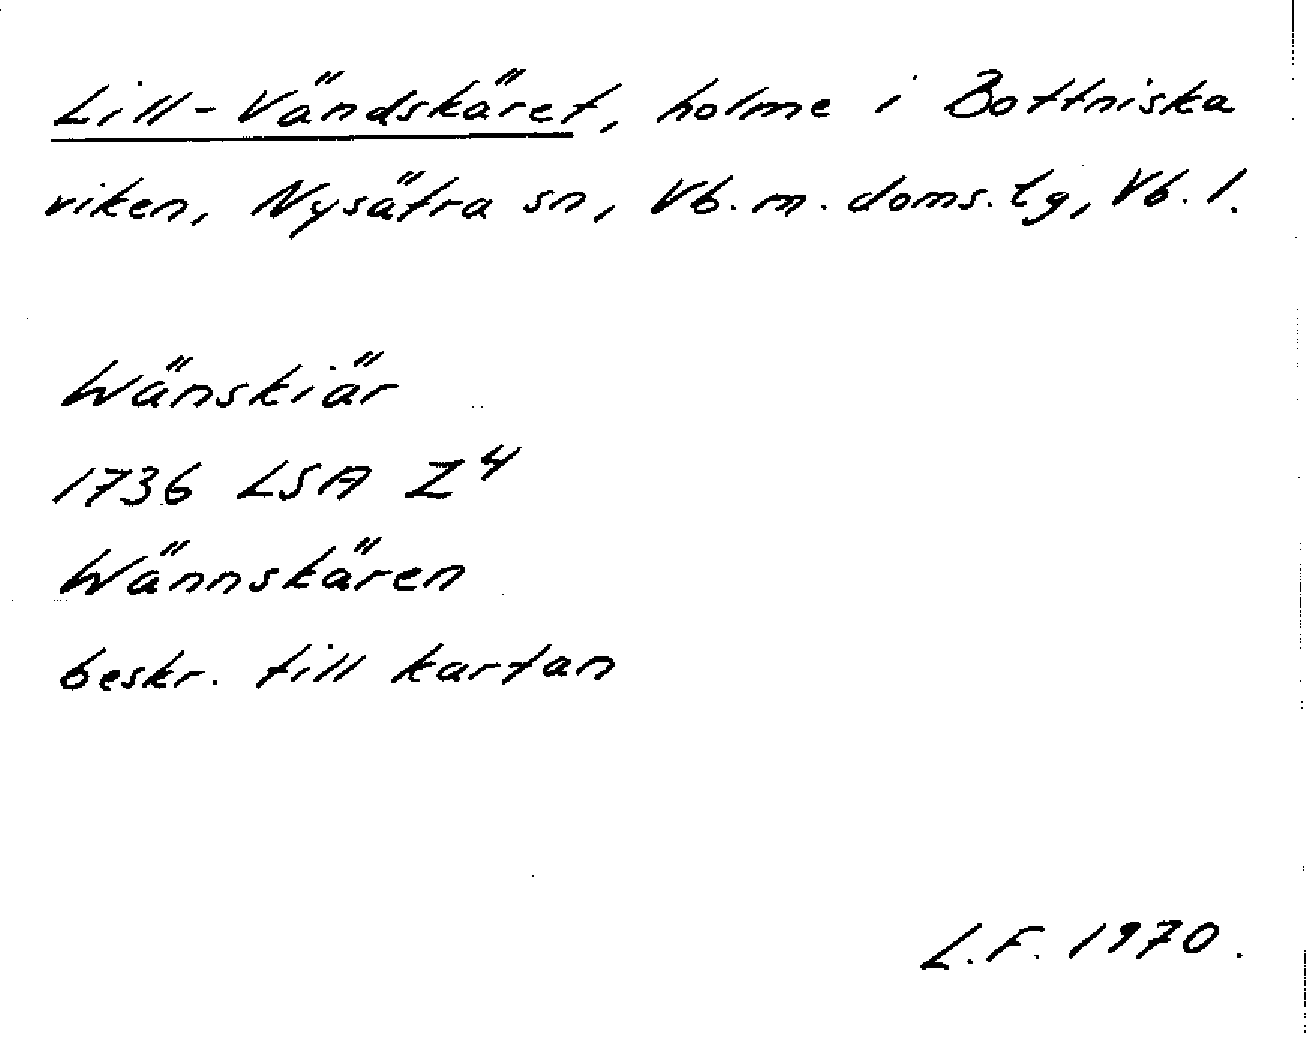 Lill-Vändskäret, holme i Bottniska
viken, Nysätra sn, Vb. m. doms. tg, Vb. l.
Wänskiär
1736 LSA Z⁴
Wännskären
beskr. till kartan
L.F. 1970.